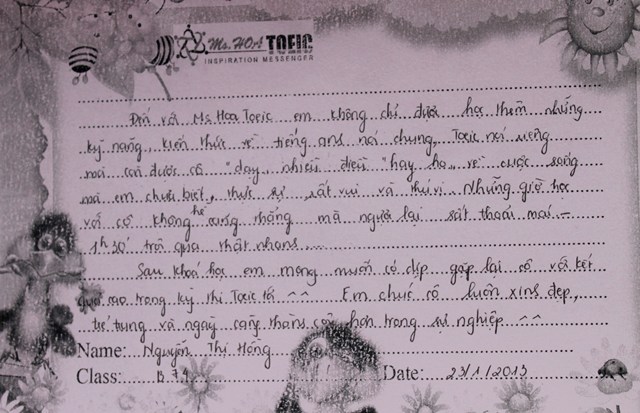 Ms. HOA TOEIC
INSPIRATION MESSENGER
Đến với Ms Hoa Toeic em không chỉ được học thêm những
kỹ năng, kiến thức về tiếng anh nói chung, Toeic nói riêng
mà còn được cô "dạy" nhiều điều "hay ho" về cuộc sống
mà em chưa biết, thực sự rất vui và thú vị. Những giờ học
với cô không hề căng thẳng mà ngược lại rất thoải mái.
1h30' trôi qua thật nhanh...
Sau khoá học em mong muốn có dịp gặp lại cô với kết
quả cao trong kỳ thi Toeic tới ^^ Em chúc cô luôn xinh đẹp,
trẻ trung và ngày càng thành công hơn trong sự nghiệp ^^
Name: Nguyễn Thị Hồng
Class: B 74
Date: 23/1/2013